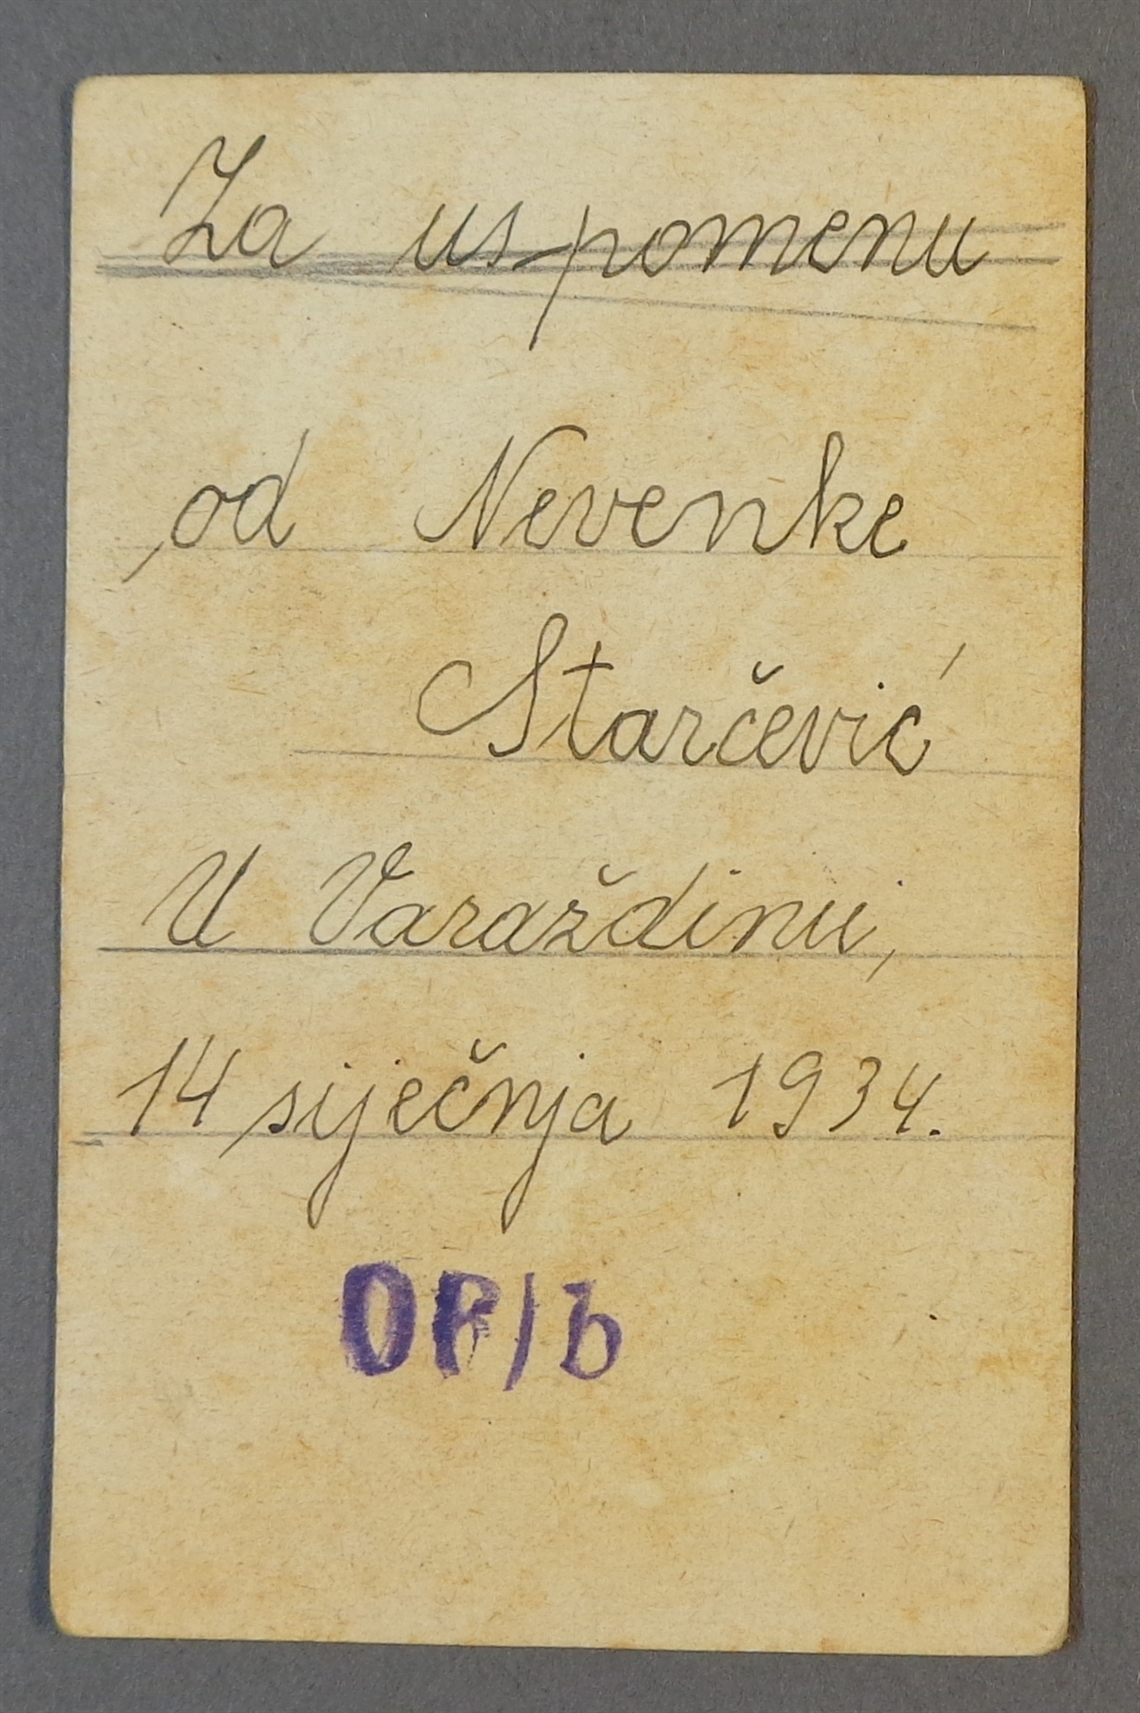 Za uspomenu
od Nevenke
Starčević
U Varaždinu,
14 siječnja 1934.
OP/b